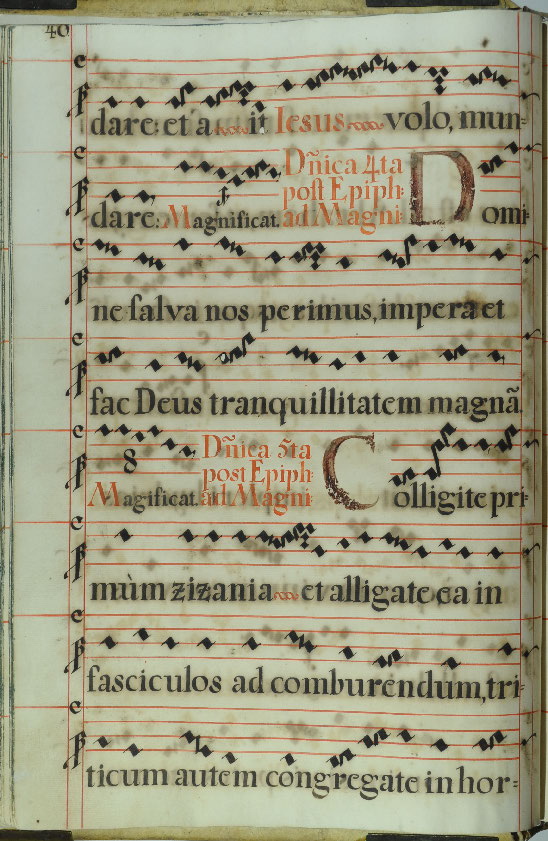 40
dare: et a it Iesus volo, mun-
dare: Magnificat. Dñica 4ta
post Epiph:
ad Magni: Domi-
ne salva nos perimus, impera et
fac Deus tranquillitatem magnã.
8
Magificat. Dñica 5ta
post Epiph:
ad Magni: Colligite pri-
mùm zizania et alligate ea in
fasciculos ad comburendum, tri-
ticum autem congregate in hor-